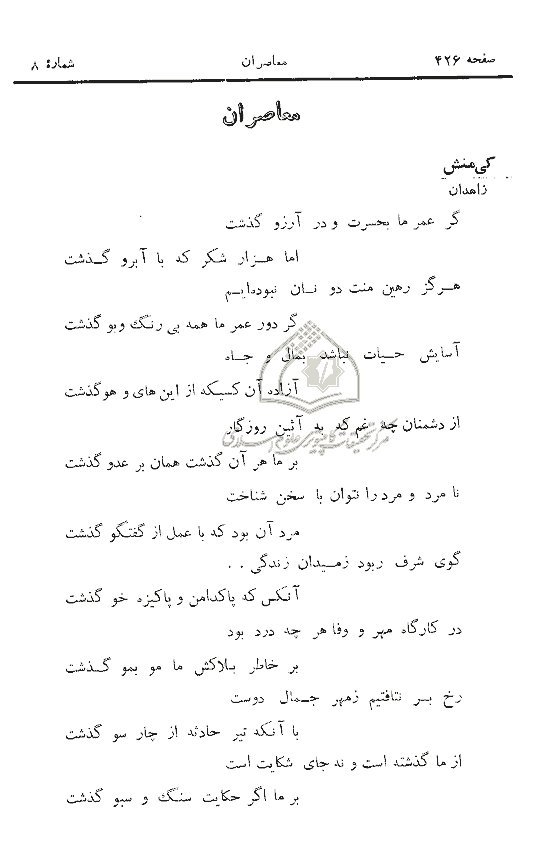 صفحه ۴۲۶ معاصران شماره ۸
معاصران
کی‌منش
زاهدان
گر عمر ما بحسرت و در آرزو گذشت
اما هزار شکر که با آبرو گذشت
هرگز رهین منت دو نان نبوده‌ایم
گر دور عمر ما همه بی رنگ وبو گذشت
آسایش حیات نباشد بمال و جاه
آزاده آن کسیکه از این های و هو گذشت
از دشمنان چه غم که به آئین روزگار
مرکز تحقیقات کامپیوتری علوم اسلامی
بر ما هر آن گذشت همان بر عدو گذشت
نا مرد و مرد را نتوان با سخن شناخت
مرد آن بود که با عمل از گفتگو گذشت
گوی شرف ربود زمیدان زندگی . .
آنکس که پاکدامن و پاکیزه خو گذشت
در کارگاه مهر و وفا هر چه درد بود
بر خاطر بلاکش ما مو بمو گذشت
رخ بر نتافتیم زمهر جمال دوست
با آنکه تیر حادثه از چار سو گذشت
از ما گذشته است و نه جای شکایت است
بر ما اگر حکایت سنگ و سبو گذشت